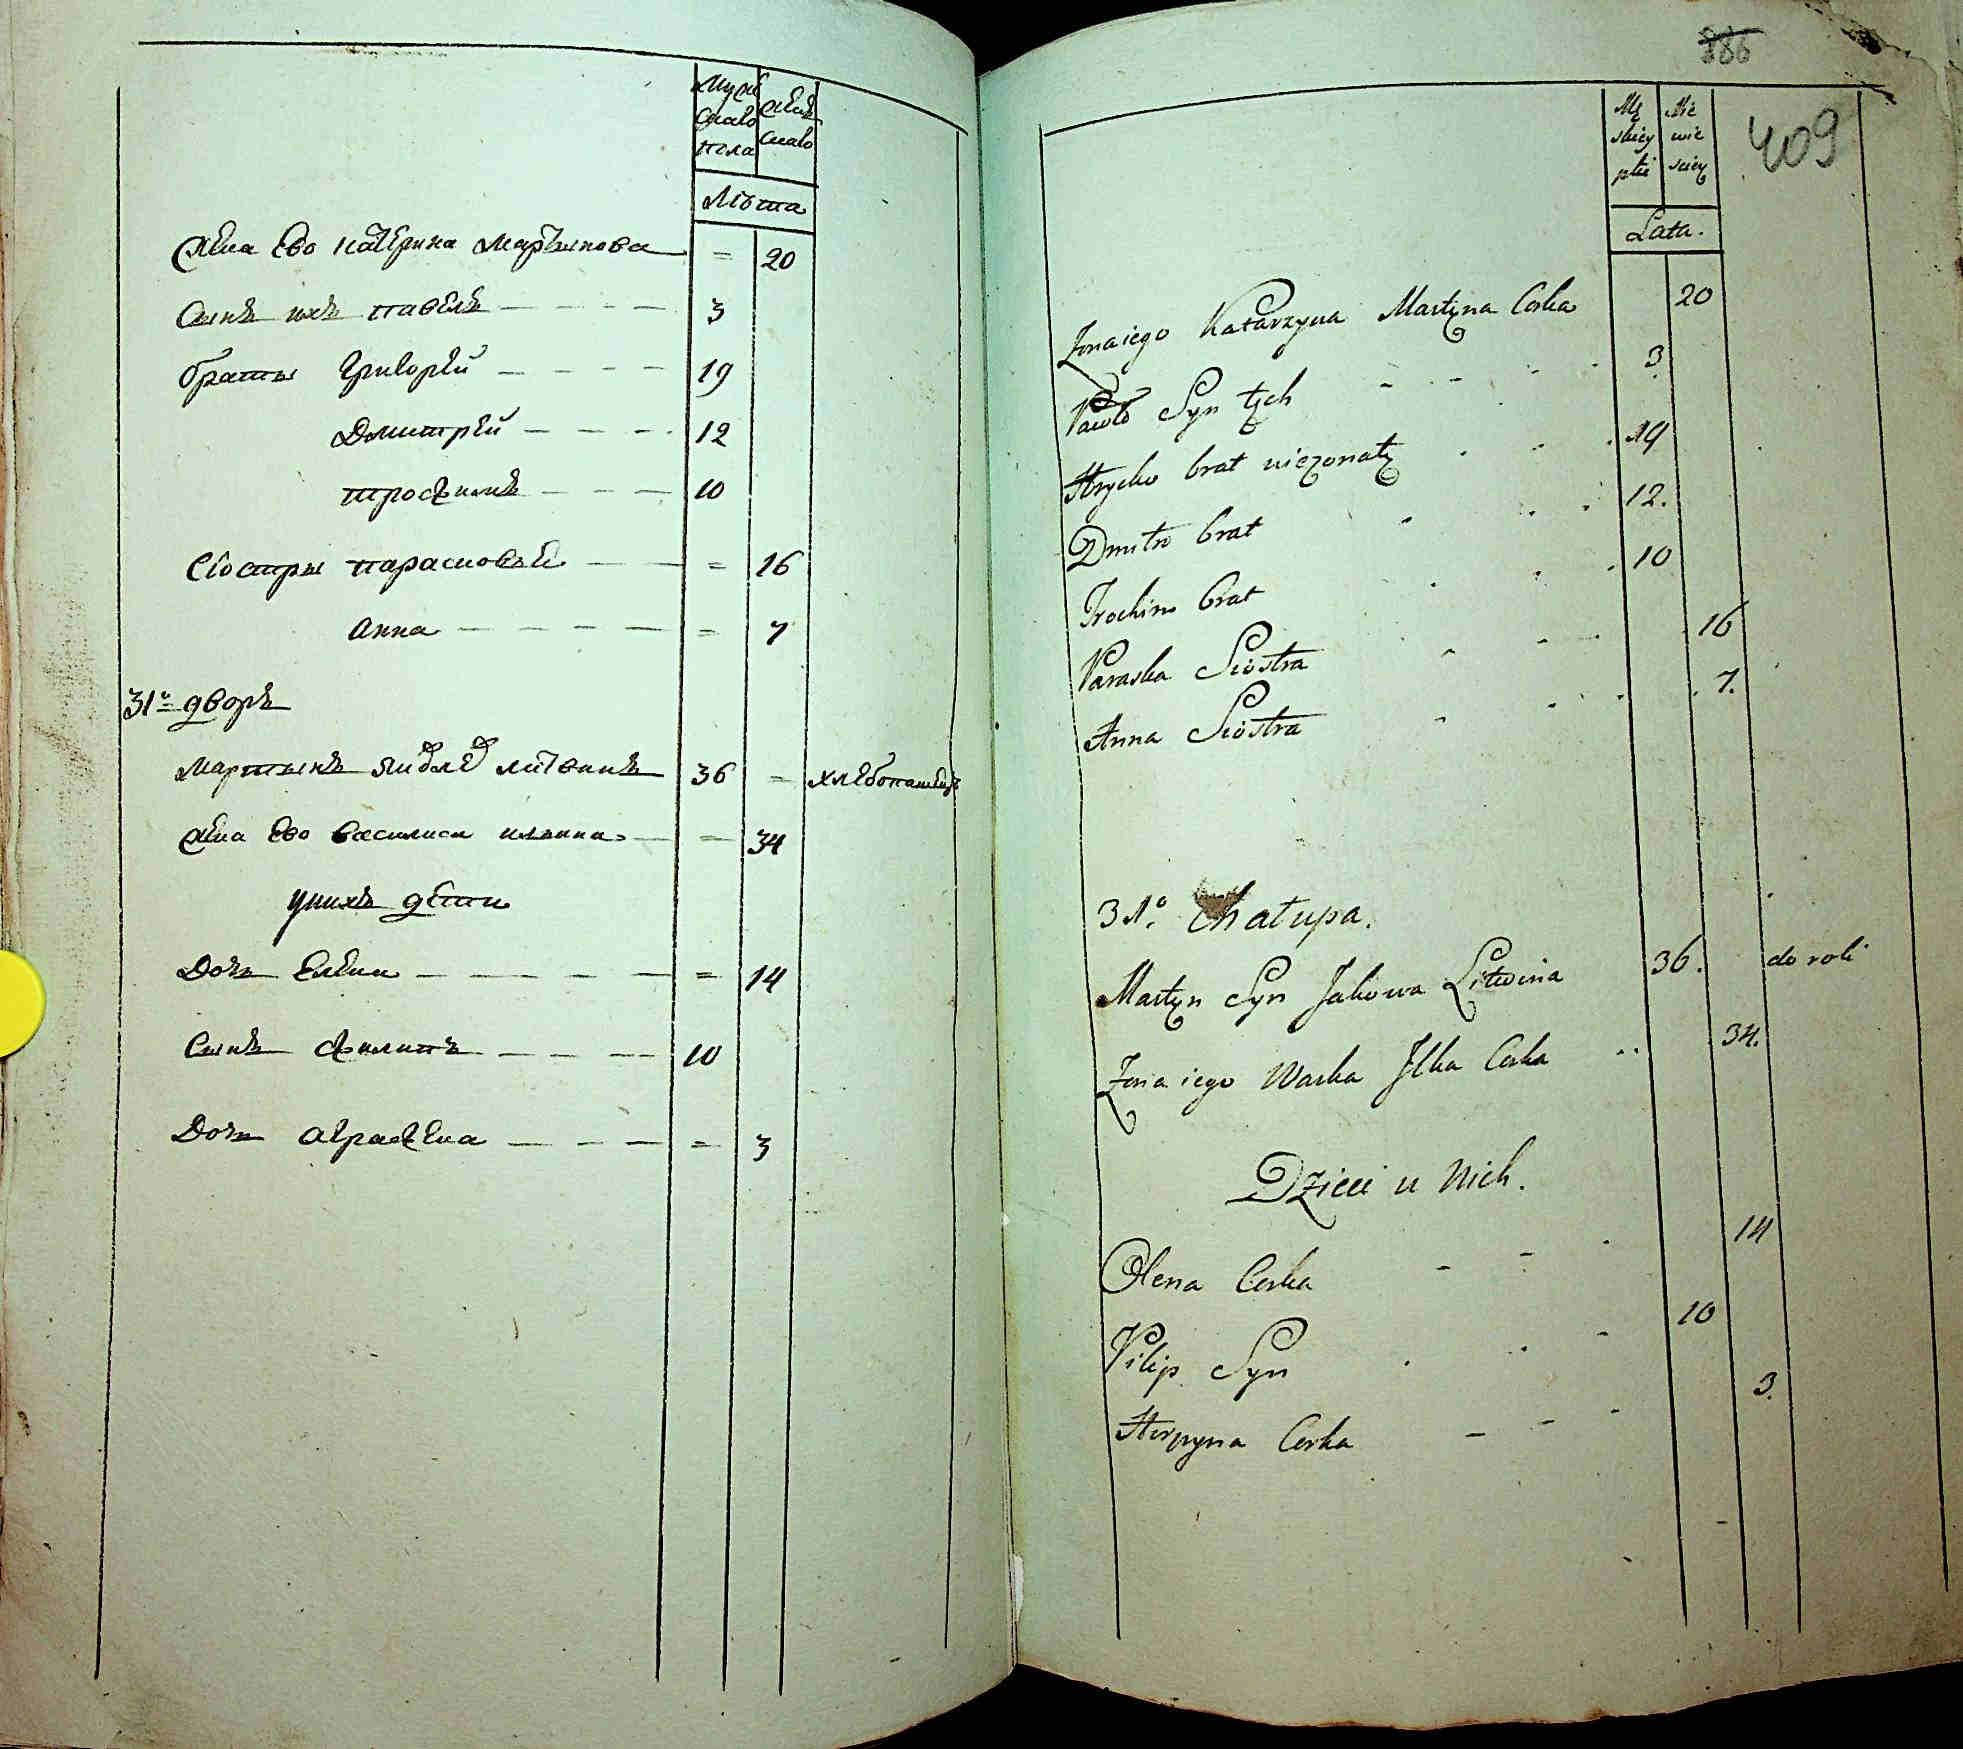 Мужескаго пола
Женскаго
Лѣта
Жена Ево Катерина Мартынова = 20
Сынъ ихъ павелъ 3
браты Григорей 19
Дмитрей 12
трофимъ 10
Сіостры парасковья = 16
Анна = 7
31й дворъ
Мартынъ литвинъ 36 = хлебопашецъ
Жена Ево Василиса ильина = 34
у нихъ дети
Дочь Елена = 14
Сынъ Филипъ 10
Дочь Аграфена = 3
886
409
Mę skiey płci
Nie wie sciey
Lata.
Zona iego Katarzyna Martyna Corka 20
Pawło Syn tych 3.
Hrycko brat niezonaty 19
Dmitro brat 12.
Trochim brat 10
Paraska Siostra 16
Anna Siostra 7.
31o. Chałupa.
Martyn Syn Jakowa Litwina 36. do roli
Zona iego Waska Ilka Corka 34.
Dzieci u Nich.
Olena Corka 14
Filip Syn 10
Horpyna Corka 3.